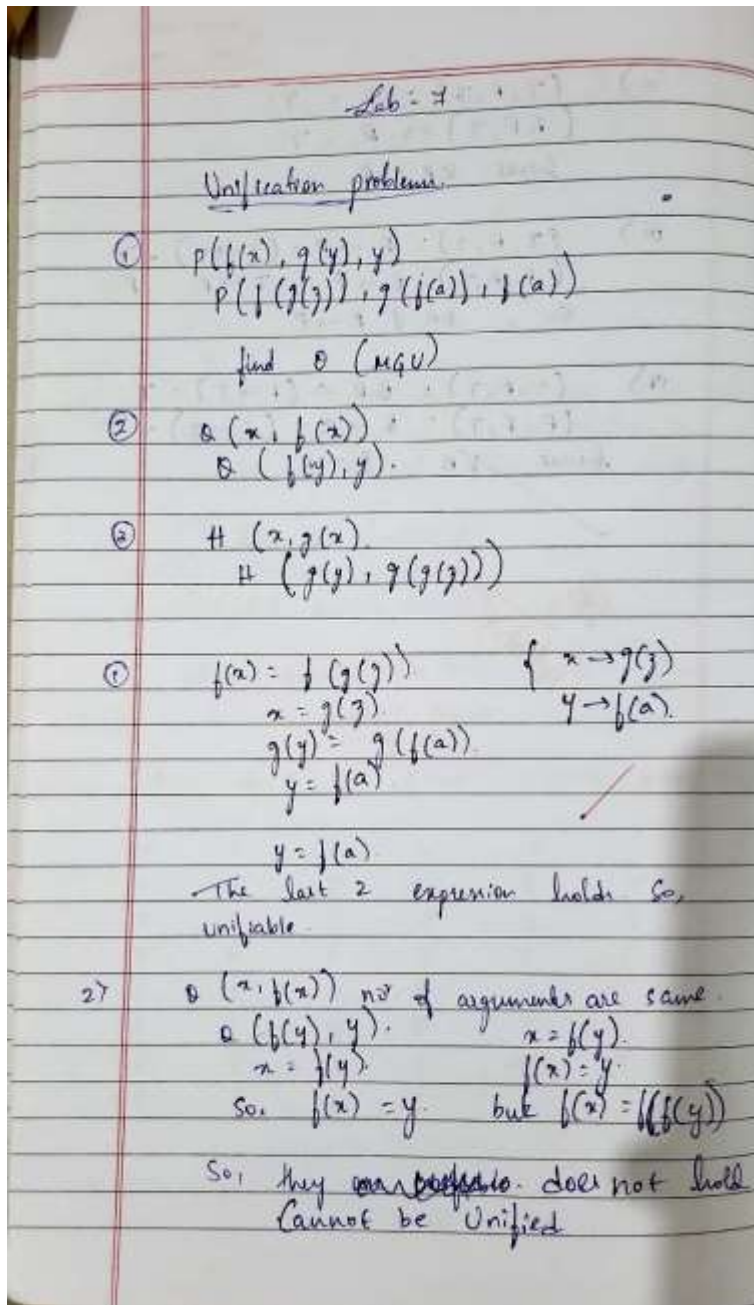 Lab: 7
Unification problems.
① P(f(x), g(y), y)
P(f(g(z)), g(f(a)), f(a))
find θ (MGU)
② Q (x, f(x))
Q (f(y), y).
③ H (x, g(x)
H (g(y), g(g(z)))
① f(x) = f(g(z)) { x → g(z)
x = g(z). y → f(a).
g(y) = g(f(a)).
y = f(a)
y = f(a)
The last 2 expression holds So,
unifiable.
2) Q (x, f(x)) no of arguments are same.
Q (f(y), y). x = f(y).
x = f(y). f(x) = y.
So, f(x) = y. but f(x) = f(f(y))
So, they does not hold
Cannot be Unified